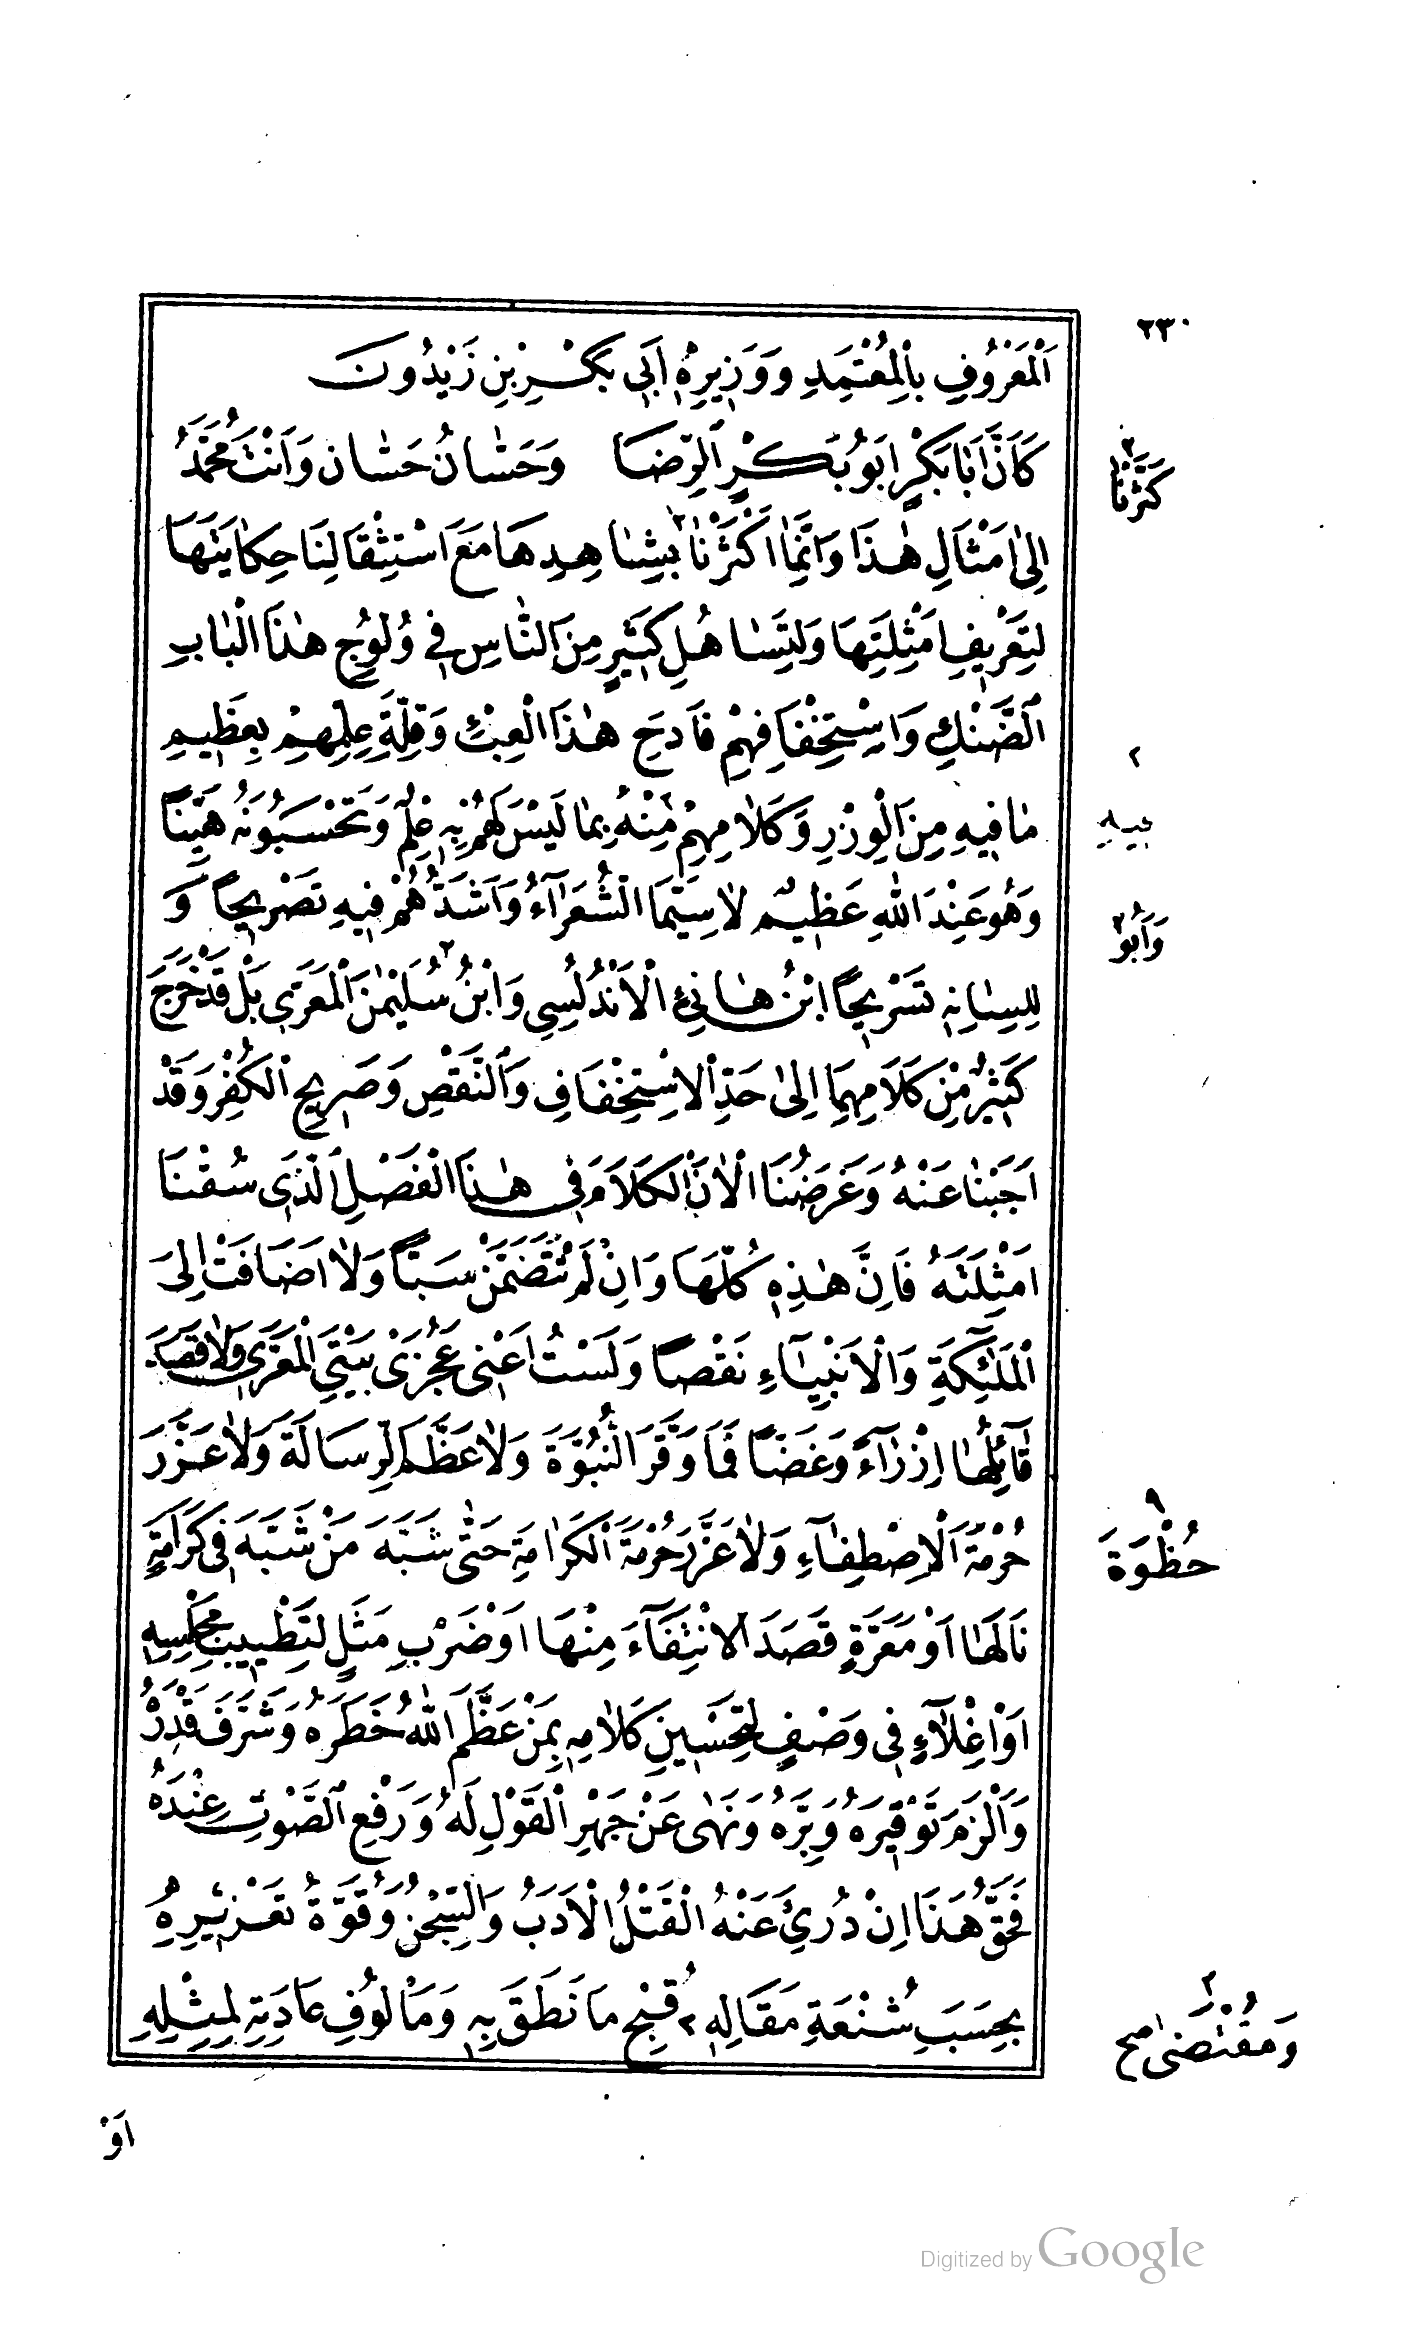 ٢٣٠
اَلْمَعْرُوفِ بِالْمُعْتَمِدِ وَوَزِيرِهِ اَبِى بَكْرِ بْنِ زَيْدُونَ
كَاَنَّ اَبَا بَكْرٍ اَبُو بَكْرٍ الرِّضَا وَحَسَّانُ حَسَّانٌ وَاَنْتَ مُحَمَّدُ
كَثَّرْنَا ٢
اِلىٰ اَمْثَالِ هٰذَا وَاِنَّمَا اَكْثَرْنَا ٢ بِشَاهِدِهَا مَعَ اسْتِثْقَالِنَا حِكَايَتَهَا
لِتَعْرِيفِ اَمْثِلَتِهَا وَلِتَسَاهُلِ كَثِيرٍ مِنَ النَّاسِ فِى وُلُوجِ هٰذَا الْبَابِ
اَلضَّنْكِ وَاسْتِخْفَافِهِمْ فَادِحَ هٰذَا الْعِبْئِ وَقِلَّةِ عِلْمِهِمْ بِعَظِيمِ
مَا فِيهِ مِنَ الْوِزْرِ وَكَلَامِهِمْ مِنْهُ بِمَا لَيْسَ لَهُمْ بِهِ عِلْمٌ وَتَحْسَبُونَهُ هَيِّنًا
٢
وَهُوَ عِنْدَ اللهِ عَظِيمٌ لَاسِيَّمَا الشُّعَرَاءُ وَاَشَدُّهُمْ فِيهِ تَصْرِيحًا وَ
وَاَبُو ٢
لِلِسَانِهِ تَسْرِيحًا ابْنُ هَانِئٍ الْاَنْدَلُسِى وَابْنُ ٢ سُلَيْمٰنَ الْمَعَرِّى بَلْ قَدْ خَرَجَ
كَثِيرٌ مِنْ كَلَامِهِمَا اِلىٰ حَدِّ الْاِسْتِخْفَافِ وَالنَّقْصِ وَصَرِيحِ الْكُفْرِ وَقَدْ
اَجَبْنَا عَنْهُ وَغَرَضُنَا الْاٰنَ الْكَلَامَ فِى هٰذَا الْفَصْلِ الَّذِى سُقْنَا
اَمْثِلَتَهُ فَاِنَّ هٰذِهِ كُلَّهَا وَاِنْ لَمْ تَتَضَمَّنْ سَبًّا وَلَا اَضَافَتْ اِلىَ
اَلْمَلٰئِكَةِ وَالْاَنْبِيَاءِ نَقْصًا وَلَسْتُ اَعْنِى عَجُزَىْ بَيْتَىِ الْمَعَرِّى وَلَا قَصَدَ
قَآئِلُهَا اِزْرَآءً وَغَضًّا فَمَا وَقَّرَ النُّبُوَّةَ وَلَا عَظَّمَ الرِّسَالَةَ وَلَا عَزَّرَ
حُظْوَةَ ٩
حُرْمَةَ الْاِصْطِفَآءِ وَلَا عَزَّزَ حُرْمَةَ الْكَرَامَةِ حَتّٰى شَبَّهَ مَنْ شَبَّهَ فِى كَرَامَةٍ
نَالَهَا اَوْ مَعَرَّةٍ قَصَدَ الْاِنْتِفَآءَ مِنْهَا اَوْ ضَرْبِ مَثَلٍ لِتَطْيِيبِ مَجْلِسِهِ
اَوْ اِغْلَآءٍ فِى وَصْفٍ لِتَحْسِينِ كَلَامِهِ بِمَنْ عَظَّمَ اللهُ خَطَرَهُ وَشَرَّفَ قَدْرَهُ
وَاَلْزَمَ تَوْقِيرَهُ وَبِرَّهُ وَنَهٰى عَنْ جَهْرِ الْقَوْلِ لَهُ وَرَفْعِ الصَّوْتِ عِنْدَهُ
فَحَقُّ هٰذَا اِنْ دُرِئَ عَنْهُ الْقَتْلُ الْاَدَبُ وَالسِّجْنُ وَقُوَّةُ تَعْزِيرِهِ
بِحَسَبِ شُنْعَةِ مَقَالِهِ ٢ قُبْحِ مَا نَطَقَ بِهِ وَمَأْلُوفِ عَادَتِهِ لِمِثْلِهِ
وَمُقْتَضٰى صح ٢
اَوْ
Digitized by Google